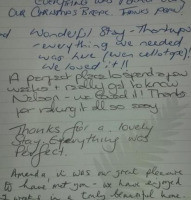 EVERYTHING WAS
OUR CHRISTMAS
Wonderful Stay - Thankyou
- everything we needed
was here (even cellotape)!
We loved it!!
A perfect place to spend a
week & really get to know
Nelson - we loved it! Thanks
for making it all so easy.
Thanks for a lovely
Stay Everything was
Perfect.
Amanda, it was our great pleasure
to have met you - we have enjoyed
truly beautiful home